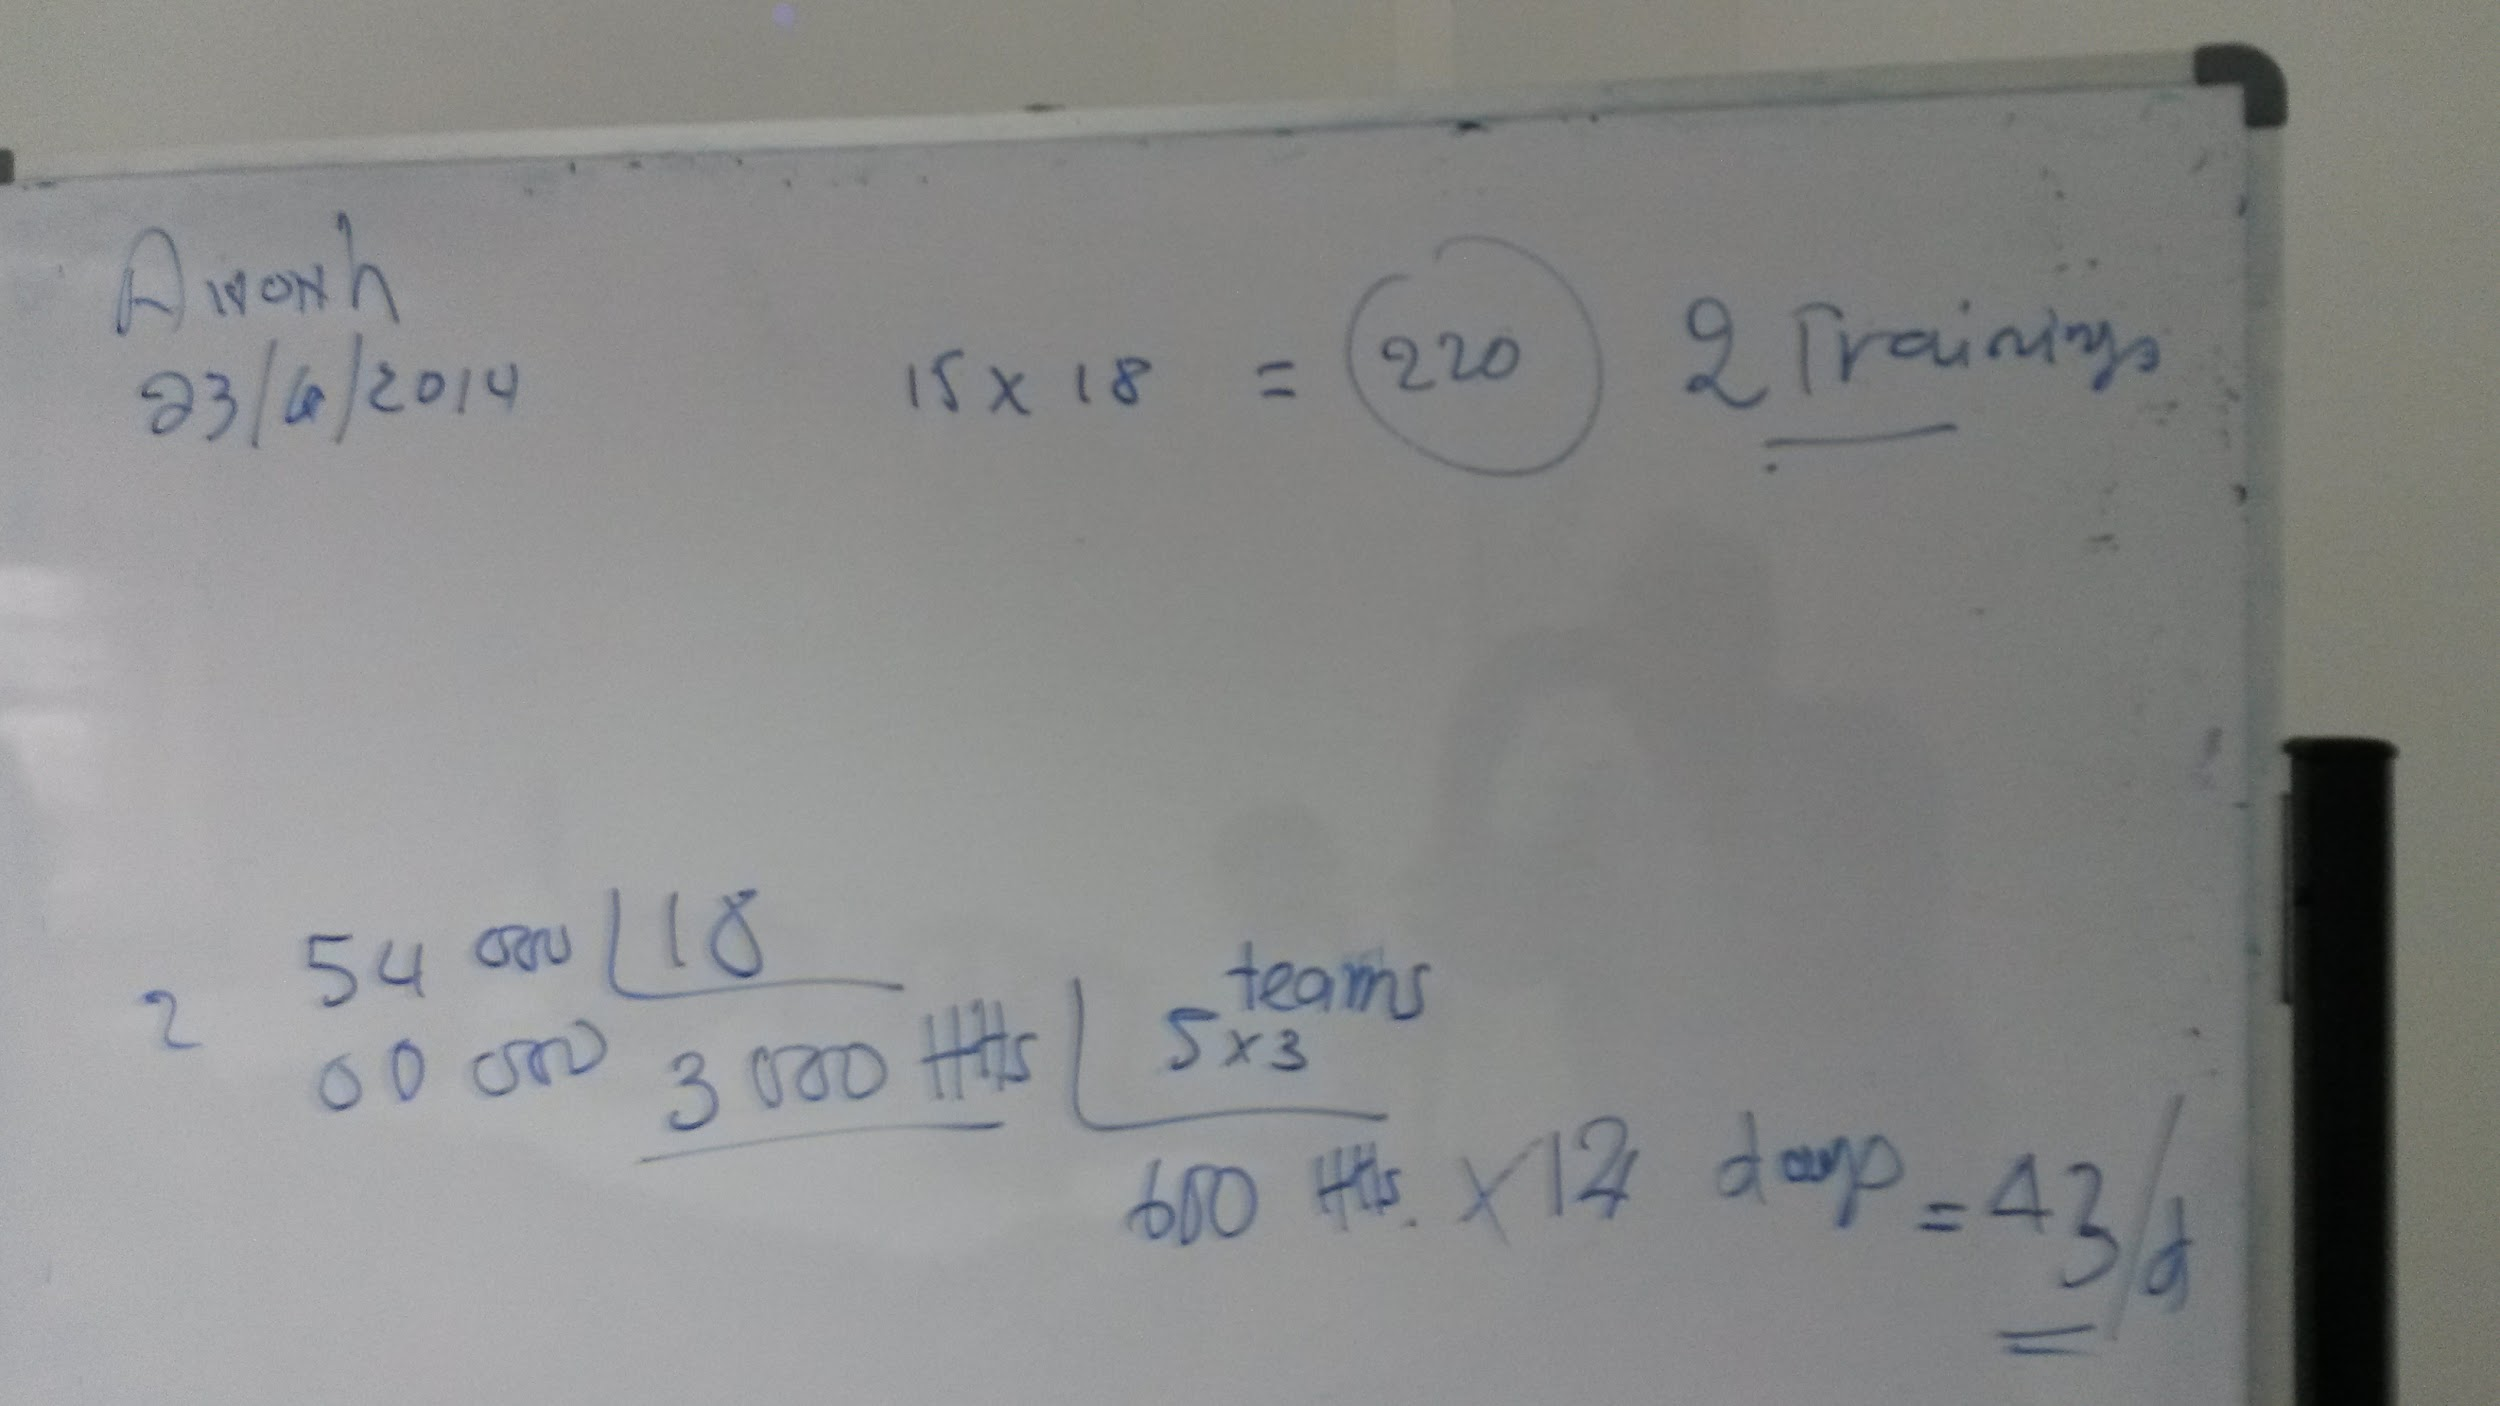 23/6/2014
15 x 18 = 220 2 Trainings
54 000 18
2 00 000 3 000 HHs 5 x 3 teams
600 HHs. x 14 days = 43/d